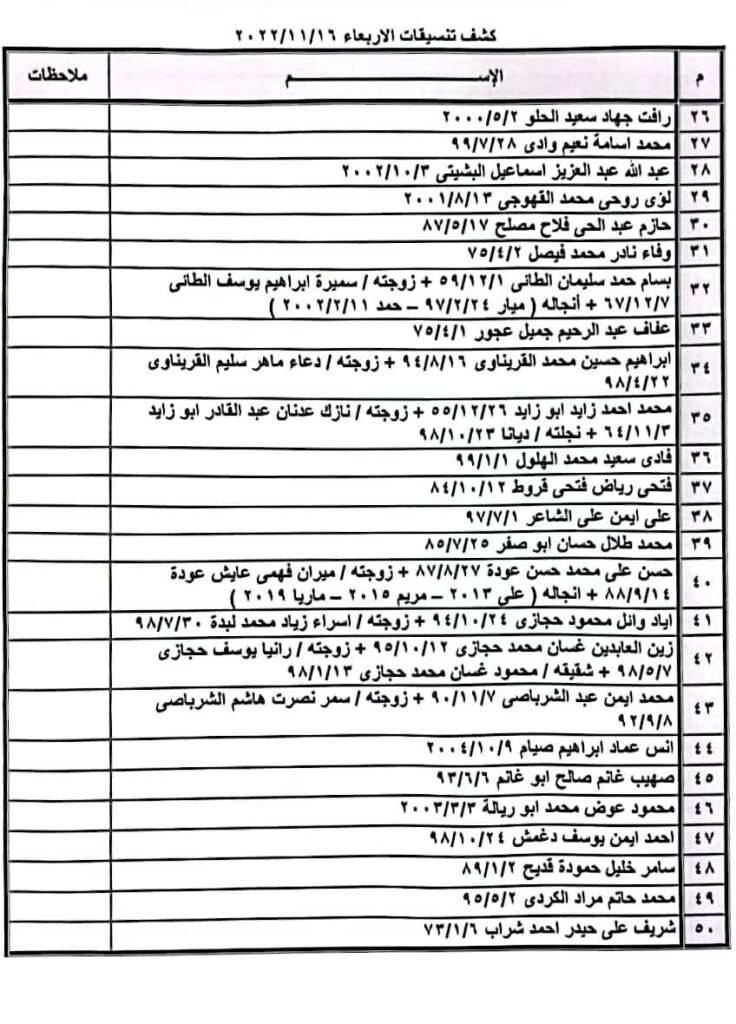 كشف تنسيقات الاربعاء ٢٠٢٢/١١/١٦
م الإســــم ملاحظات
٢٦ رافت جهاد سعيد الحلو ٢٠٠٠/٥/٢
٢٧ محمد اسامة نعيم وادى ٩٩/٧/٢٨
٢٨ عبد الله عبد العزيز اسماعيل البشيتى ٢٠٠٢/١٠/٣
٢٩ لؤى روحى محمد القهوجى ٢٠٠١/٨/١٣
٣٠ حازم عبد الحى فلاح مصلح ٨٧/٥/١٧
٣١ وفاء نادر محمد فيصل ٧٥/٤/٢
٣٢ بسام حمد سليمان الطائى ٥٩/١٢/١ + زوجته / سميرة ابراهيم يوسف الطائى
٦٧/١٢/٧ + أنجاله ( ميار ٩٧/٢/٢٤ – حمد ٢٠٠٢/٢/١١ )
٣٣ عفاف عبد الرحيم جميل عجور ٧٥/٤/١
٣٤ ابراهيم حسين محمد القريناوى ٩٤/٨/١٦ + زوجته / دعاء ماهر سليم القريناوى
٩٨/٤/٢٢
٣٥ محمد احمد زايد ابو زايد ٥٥/١٢/٢٦ + زوجته / نازك عدنان عبد القادر ابو زايد
٦٤/١١/٣ + نجلته / ديانا ٩٨/١٠/٢٣
٣٦ فادى سعيد محمد الهلول ٩٩/١/١
٣٧ فتحى رياض فتحى قروط ٨٤/١٠/١٢
٣٨ على ايمن على الشاعر ٩٧/٧/١
٣٩ محمد طلال حسان ابو صفر ٨٥/٧/٢٥
٤٠ حسن على محمد حسن عودة ٨٧/٨/٢٧ + زوجته / ميران فهمى عايش عودة
٨٨/٩/١٤ + انجاله ( على ٢٠١٣ – مريم ٢٠١٥ – ماريا ٢٠١٩ )
٤١ اياد وائل محمود حجازى ٩٤/١٠/٢٤ + زوجته / اسراء زياد محمد لبدة ٩٨/٧/٣٠
٤٢ زين العابدين غسان محمد حجازى ٩٥/١٠/١٢ + زوجته / رانيا يوسف حجازى
٩٨/٥/٧ + شقيقه / محمود غسان محمد حجازى ٩٨/١/١٣
٤٣ محمد ايمن عبد الشرباصى ٩٠/١١/٧ + زوجته / سمر نصرت هاشم الشرباصى
٩٢/٩/٨
٤٤ انس عماد ابراهيم صيام ٢٠٠٤/١٠/٩
٤٥ صهيب غانم صالح ابو غانم ٩٣/٦/٦
٤٦ محمود عوض محمد ابو ريالة ٢٠٠٣/٣/٣
٤٧ احمد ايمن يوسف دغمش ٩٨/١٠/٢٤
٤٨ سامر خليل حمودة قديح ٨٩/١/٢
٤٩ محمد حاتم مراد الكردى ٩٥/٥/٢
٥٠ شريف على حيدر احمد شراب ٧٣/١/٦